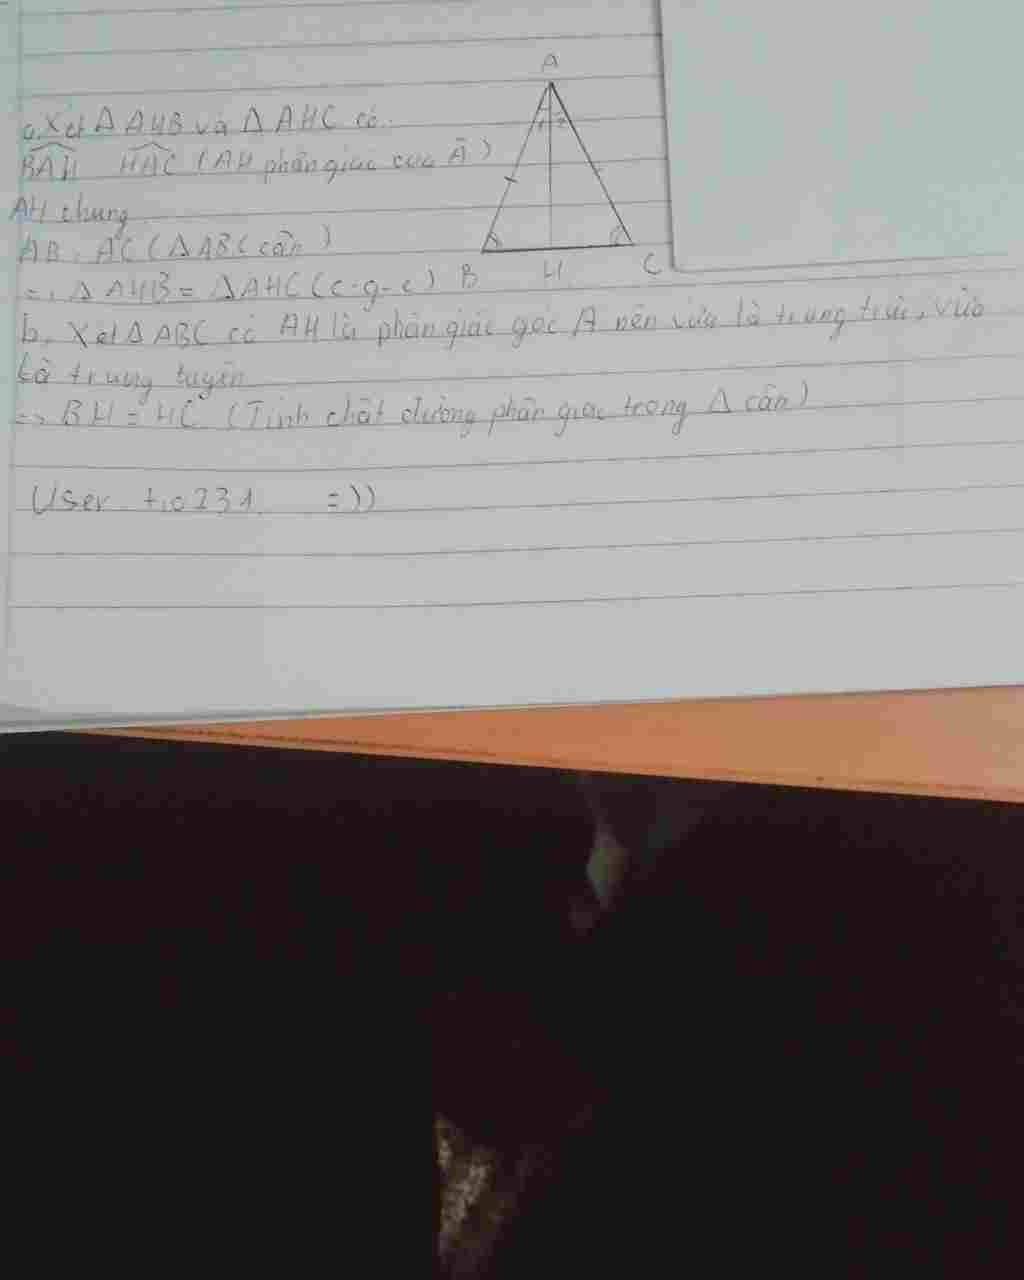 A
a. Xét Δ AHB và Δ AHC có:
BAH HAC (AH phân giác của Â)
1 2
AH chung
AB = AC (Δ ABC cân)
B H C
=> Δ AHB = Δ AHC (c-g-c)
b, Xét Δ ABC có AH là phân giác góc A nên vừa là trung trực, vừa
là trung tuyến
=> BH = HC (Tính chất đường phân giác trong Δ cân)
User tio231 =))